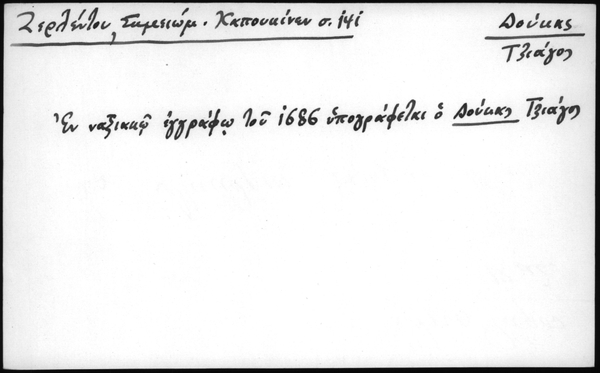 Ζερλέντου, Σημειώμ. Καπουκίνων σ. 141
Δούκας
Τζιάγος
Ἐν ναξιακῷ ἐγγράφῳ τοῦ 1686 ὑπογράφεται ὁ Δούκας Τζιάγος